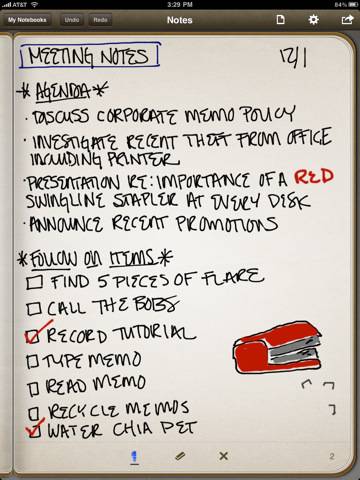 AT&T 3:29 PM 84%
My Notebooks Undo Redo Notes
MEETING NOTES 12/1
* AGENDA *
· DISCUSS CORPORATE MEMO POLICY
· INVESTIGATE RECENT THEFT FROM OFFICE
INCLUDING PRINTER
· PRESENTATION RE: IMPORTANCE OF A RED
SWINGLINE STAPLER AT EVERY DISK
· ANNOUNCE RECENT PROMOTIONS
* FOLLOW ON ITEMS *
FIND 5 PIECES OF FLARE
CALL THE BOBS
RECORD TUTORIAL
TYPE MEMO
READ MEMO
RECYCLE MEMOS
WATER CHIA PET
2